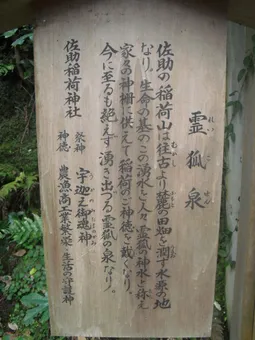 霊狐泉
れいこせん
佐助の稲荷山は往古より麓の田畑を潤す水系の地
むかし
なり。生命の基のこの湧水を人々霊狐の神水と称え
家々の神棚に供えて稲荷のご神徳を戴くなり。
今に至るも絶えず湧き出づる霊狐の泉なり。
佐助稲荷神社
祭神 宇迦之御魂神
うかのみたまのかみ
神徳 農漁商工業繁栄 生活の守護神